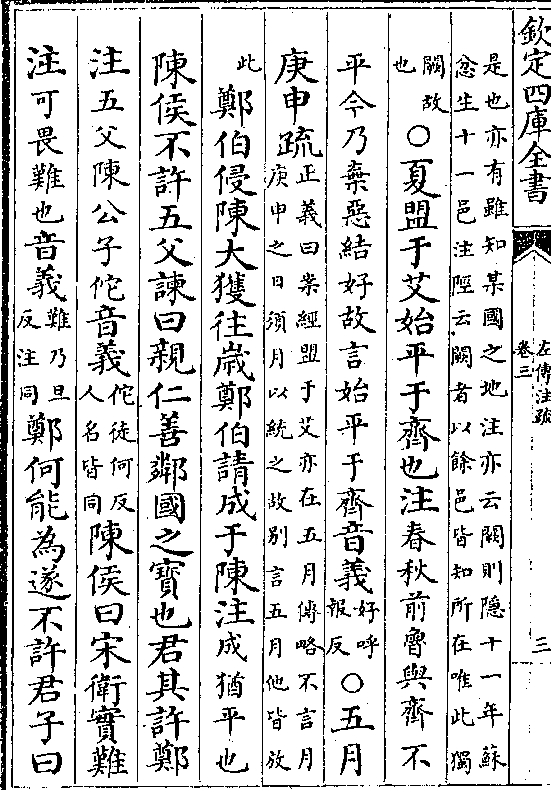 欽定四庫全書
左傳注疏
卷三
三
是也亦有雖知某國之地注亦云闕則隱十一年蘇
忿生十一邑注陘云闕者以餘邑皆知所在唯此獨
闕故
也
○夏盟于艾始平于齊也注春秋前魯與齊不
平今乃棄惡結好故言始平于齊音義
好呼
報反
○五月
庚申疏
正義曰案經盟于艾亦在五月傳略不言月
庚申之日須月以統之故別言五月他皆放
此
鄭伯侵陳大獲往歲鄭伯請成于陳注成猶平也
陳侯不許五父諫曰親仁善鄰國之寶也君其許鄭
注五父陳公子佗音義
佗徒何反
人名皆同
陳侯曰宋衛實難
注可畏難也音義
難乃旦
反注同
鄭何能為遂不許君子曰